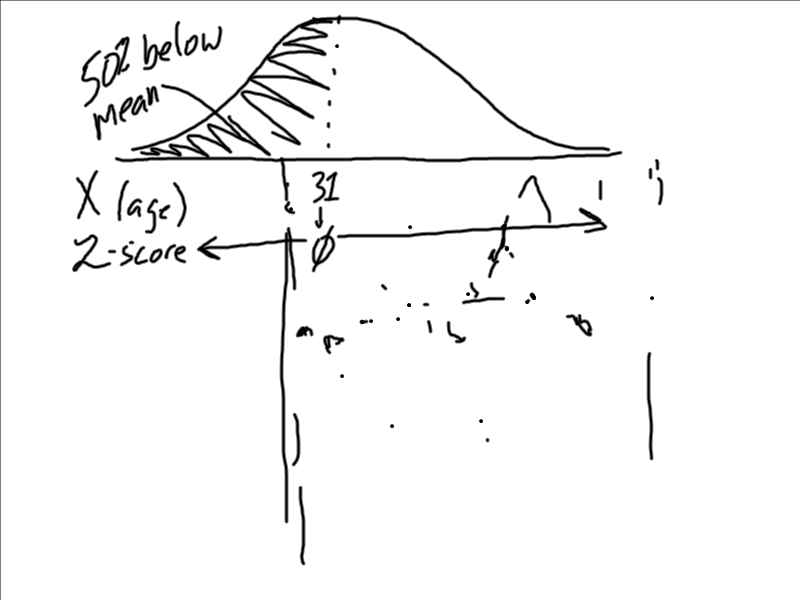 50% below
mean
X (age) 31
Z-score 0